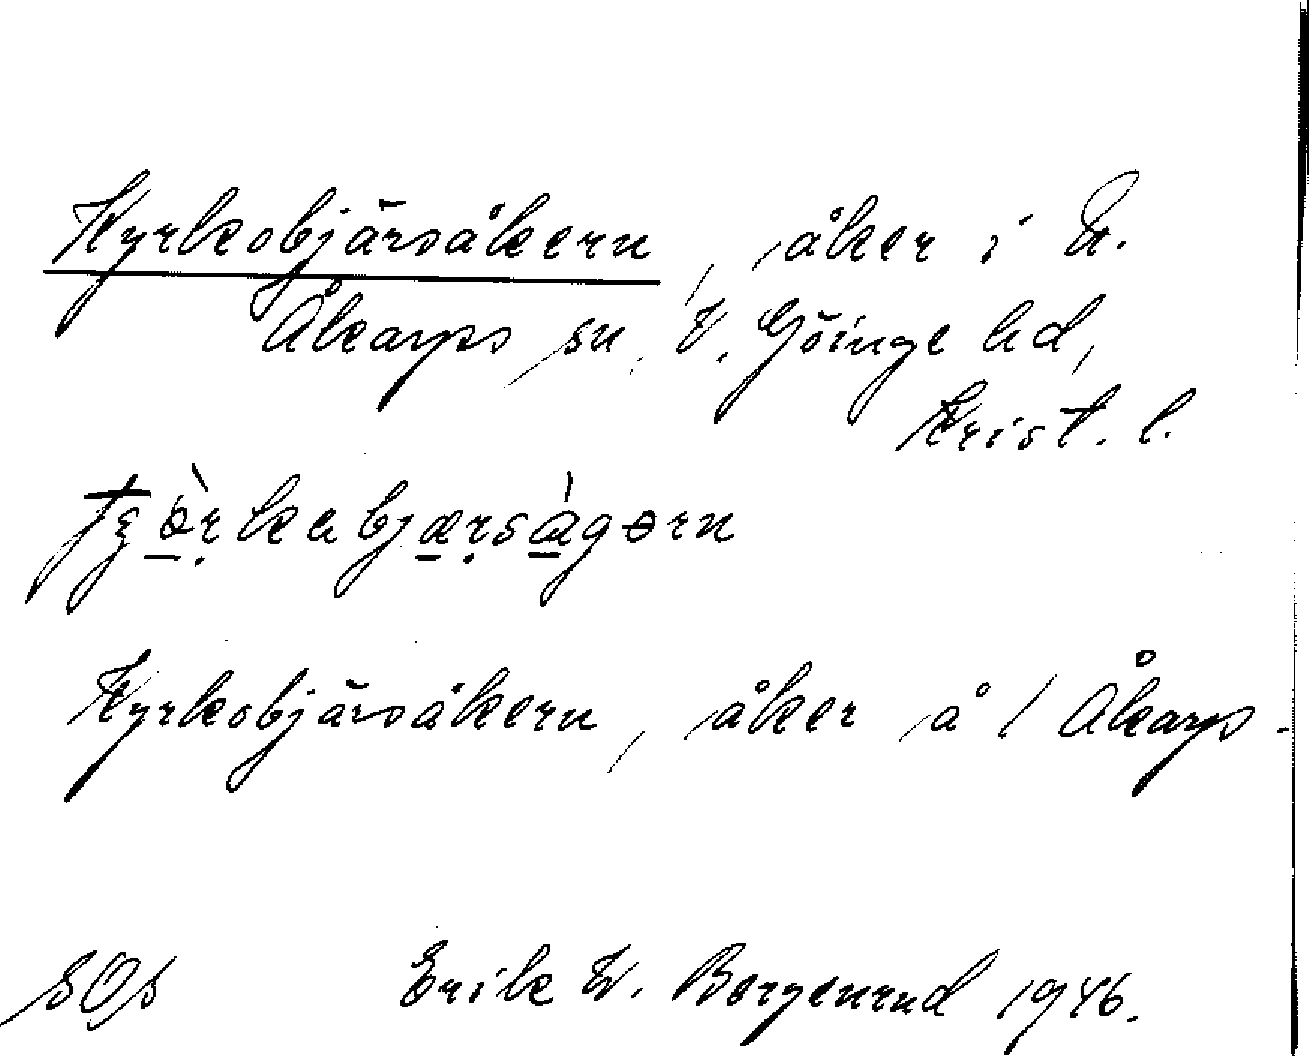 Kyrkobjärsåkern, åker i N.
Åkarps sn. V. Göinge hd,
Krist. l.
Kyrkobjärsåkern, åker å 1 Åkarp.
SOs Erik W. Bergenrud 1946.